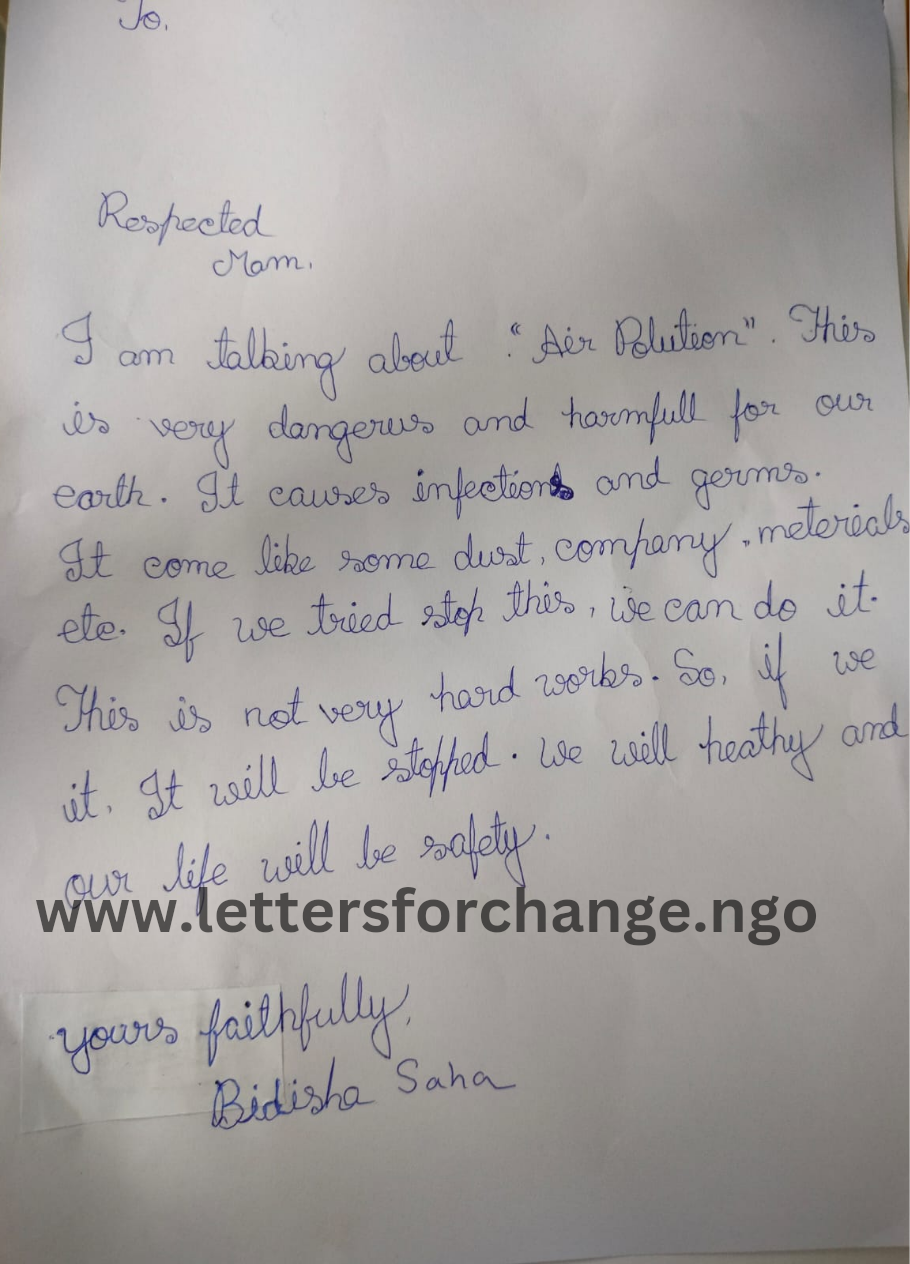 To,
Respected
Mam,
I am talking about "Air Polution". This
is very dangerus and harmfull for our
earth. It causes infections and germs.
It come like some dust, company, meterials
etc. If we tried stop this, we can do it.
This is not very hard works. So, if we
it. It will be stopped. we will heathy and
our life will be safety.
www.lettersforchange.ngo
yours faithfully,
Bidisha Saha